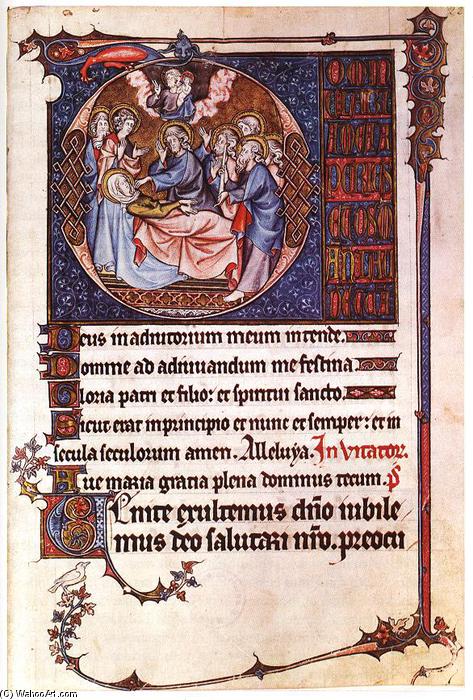 PERIES
Deus in adiutorium meum intende.
Domine ad adiuuandum me festina
Gloria patri et filio: et spiritui sancto.
Sicut erat in principio et nunc et semper: et in
secula seculorum amen. Alleluya. Inuitator.
Aue maria gracia plena dominus tecum. ps
Uenite exultemus dño iubile
mus deo salutari nr̄o. preocu
(C) WahooArt.com